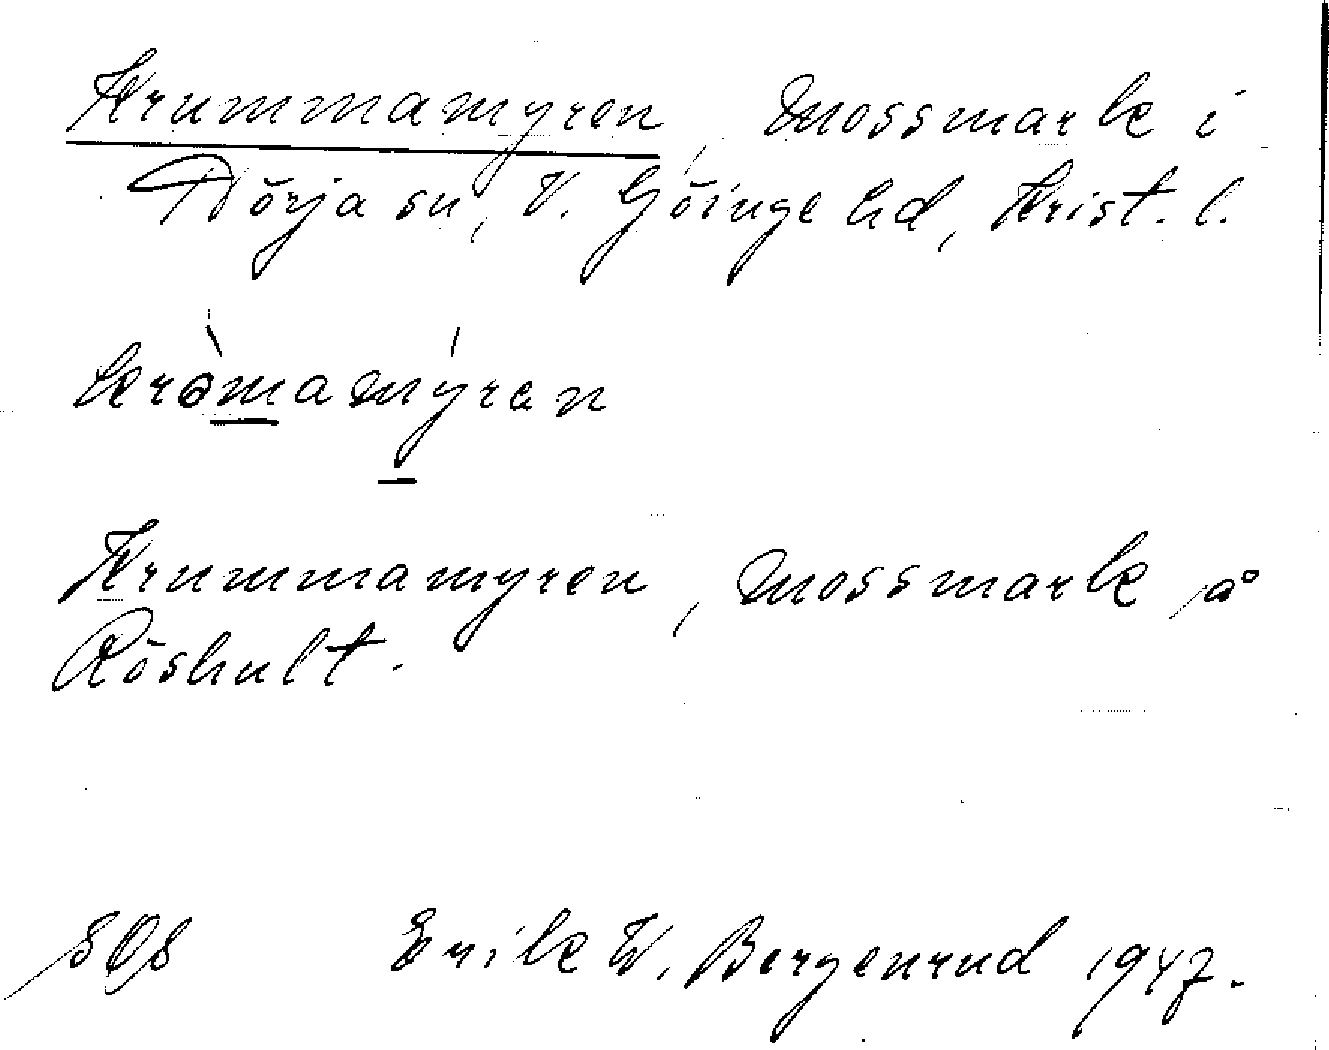 Krummamyren, Mossmark i
Nörja sn, V. Göinge hd, Krist. l.
kròmamýren
Krummamyren, Mossmark å
Röshult.
Erik W. Bergenrud 1947.